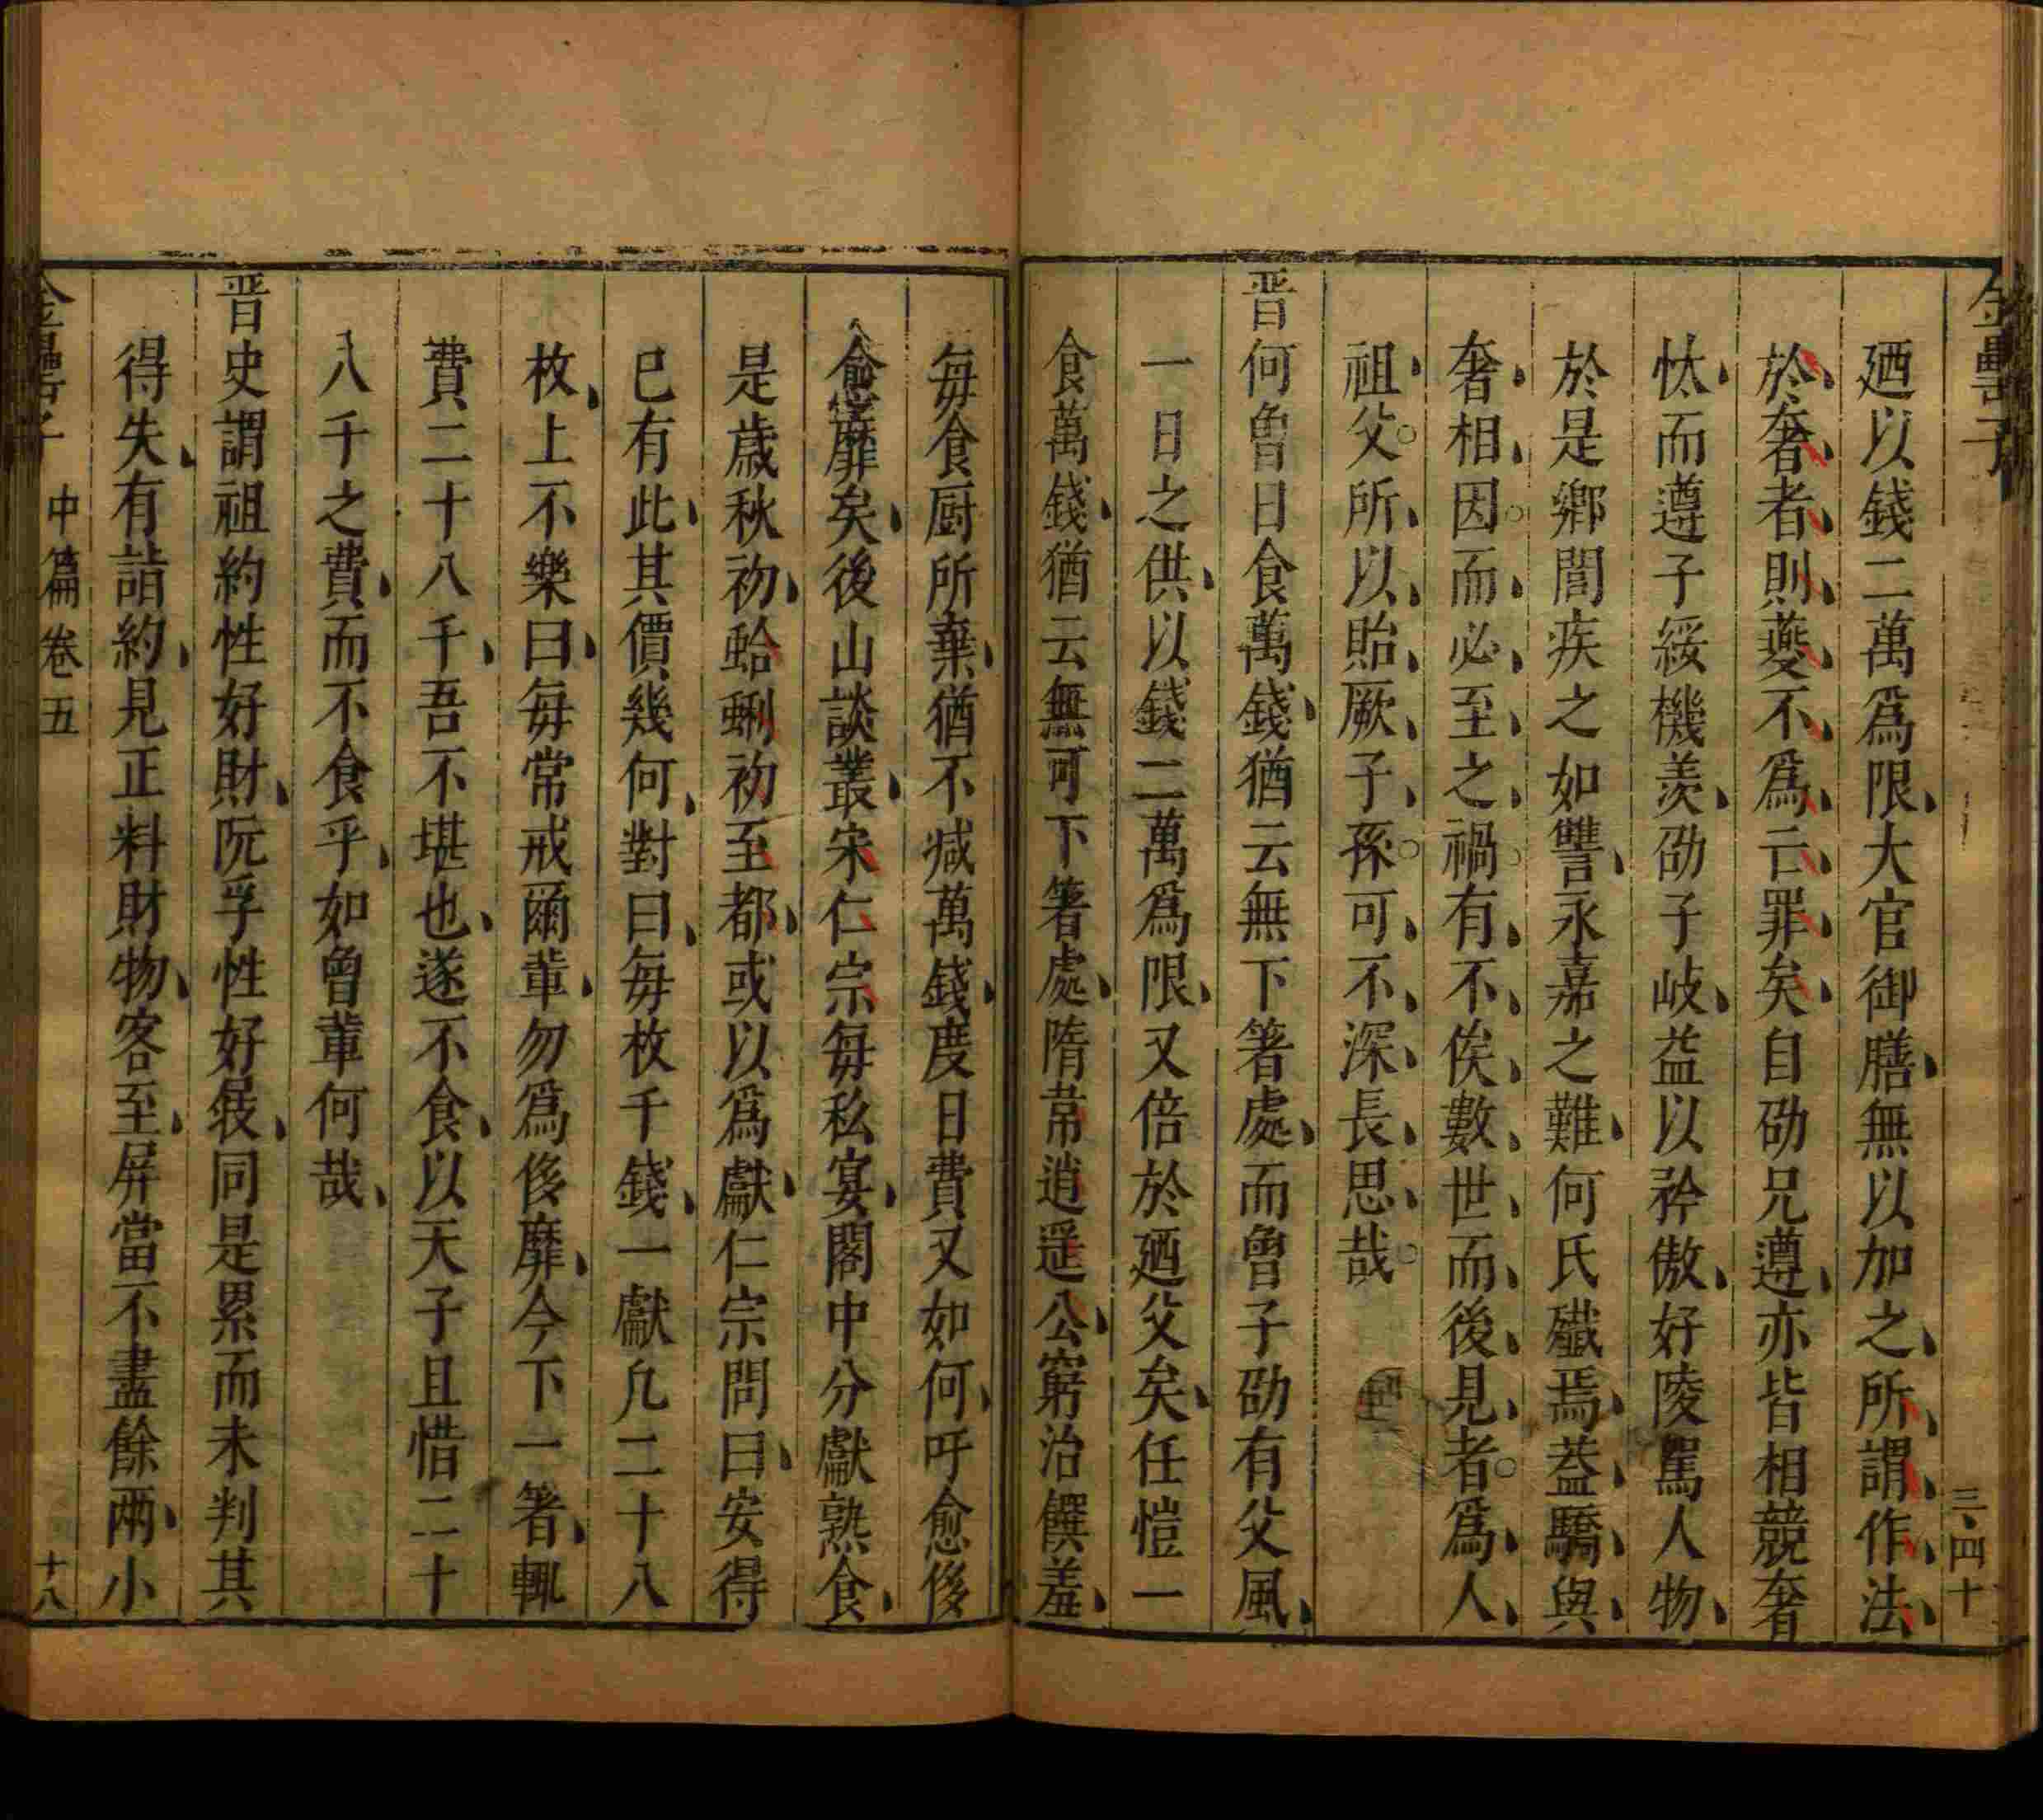 金罍子
三四十
廼以錢二萬爲限大官御膳無以加之所謂作法
於奢者則㸐不爲亡罪矣自劭兄遵亦皆相競奢
忲而遵子綏機羨劭子岐益以矜傲好陵駕人物
於是鄉閭疾之如讐永嘉之難何氏殱焉葢驕與
奢相因而必至之禍有不俟數世而後見者爲人
祖父所以貽厥子孫可不深長思哉
晋何曾日食萬錢猶云無下箸處而曾子劭有父風
一日之供以錢二萬爲限又倍於廼父矣任愷一
食萬錢猶云無可下箸處隋韋逍遥公窮治饌羞
每食厨所棄猶不减萬錢度日費又如何吁愈侈
愈靡矣後山談叢宋仁宗每私宴閣中分獻熟食
是歳秋初蛤蜊初至都或以爲獻仁宗問曰安得
巳有此其價幾何對曰每枚千錢一獻凢二十八
枚上不樂曰每常戒爾輩勿爲侈靡今下一箸輒
費二十八千吾不堪也遂不食以天子且惜二十
八千之費而不食乎如曾輩何哉
晋史謂祖約性好財阮孚性好屐同是累而未判其
得失有詣約見正料財物客至屏當不盡餘兩小
金罍子 中篇 卷五 十八